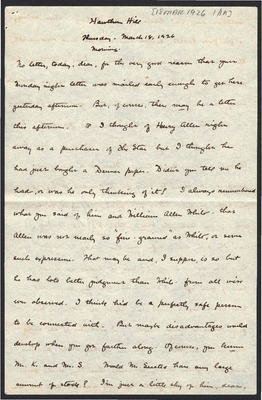 [18MAR1926 (AA)]
Hawthorn Hill
Thursday. March 18, 1926
Morning.
No letter, today, dear, for the very good reason that your
Monday night letter was mailed early enough to get here
yesterday afternoon. But, of course, there may be a letter
this afternoon. I thought of Henry Allen right
away as a purchaser of the Star but I thought he
had just bought a Denver paper. Didn't you tell me he
had, or was he only thinking of it? I always remembered
what you said of him and William Allen White - that
Allen was not nearly so "fine grained" as White, or some
such expression. That may be and, I suppose, is so but
he has lots better judgment than White from all
observed. I think he'd be a perfectly safe person
to be connected with. But maybe disadvantages would
develop when you got farther along. Of course, you know
Mr. K. and Mr. S. Would Mr. have any large
amount of stock? I'm just a little shy of him, dear,